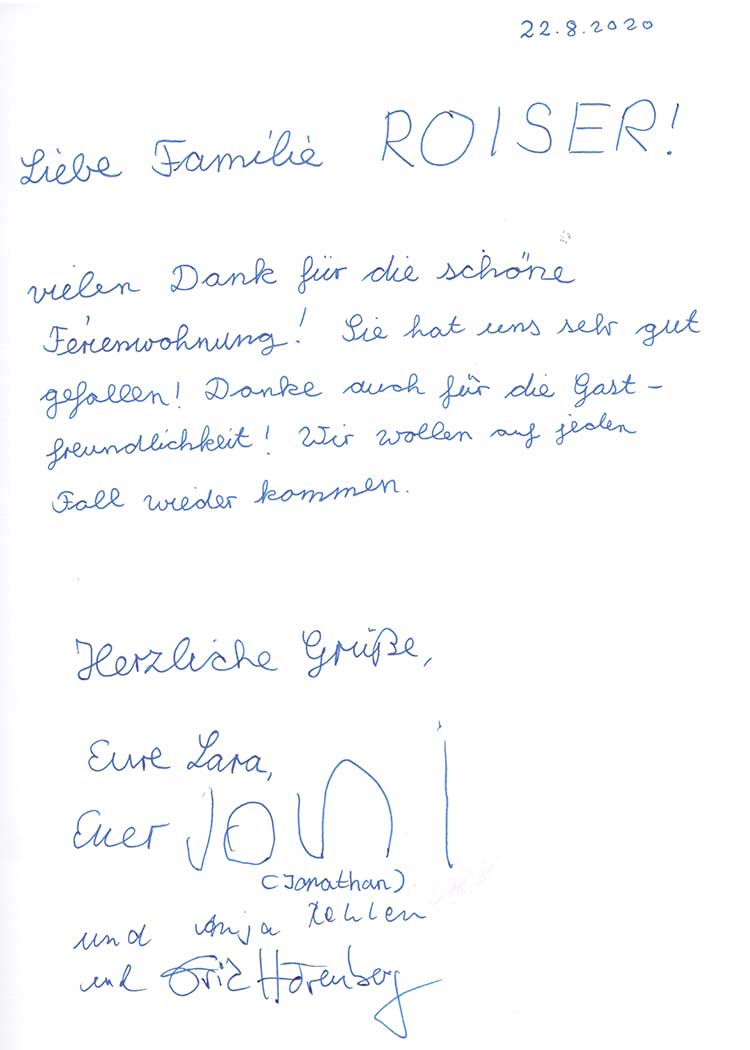 22.8.2020
Liebe Familie ROISER!
vielen Dank für die schöne
Ferienwohnung! Sie hat uns sehr gut
gefallen! Danke auch für die Gast-
freundlichkeit! Wir wollen auf jeden
Fall wieder kommen.
Herzliche Grüße,
Eure Lara,
Euer JONI
(Jonathan)
und Anja
und